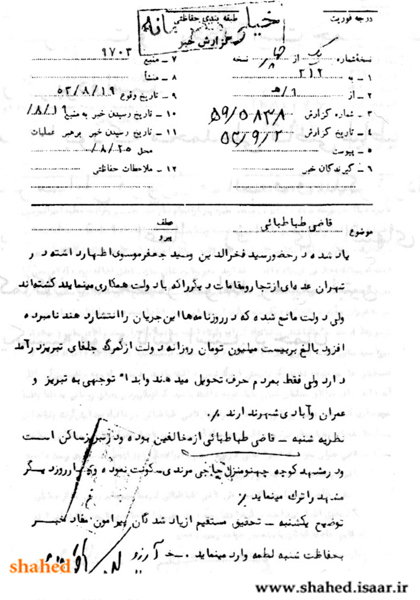 درجه فوریت
طبقه بندی حفاظتی
خیلی محرمانه
گزارش خبر
نسخه شماره یک از چهار نسخه
۱ - به ۲۱۲
۲ - از ۹/ه
۳ - شماره گزارش ۵۹/۵۸۳۸
۴ - تاریخ گزارش ۵۲/۹/۲
۵ - پیوست
۶ - گیرندگان خبر
۷ - منبع ۹۷۰۲
۸ - منشأ
۹ - تاریخ وقوع ۵۲/۸/۱۹
۱۰ - تاریخ رسیدن خبر به منبع ۸/۱۹/
۱۱ - تاریخ رسیدن خبر برهبر عملیات
محل ۸/۲۵/۰
۱۲ - ملاحظات حفاظتی
موضوع قاضی طباطبائی
عطف
پیرو
یاد شده در حضور سید فخرالدین وسید جعفر موسوی اظهار داشته در
تهران عده‌ای از تجار ومقامات دیگر که با دولت همکاری مینمایند کشته‌اند
ولی دولت مانع شده که در روزنامه‌ها این جریان را انتشار دهند نامبرده
افزود بالغ بر بیست میلیون تومان روزانه دولت از گمرگ جلفای تبریز درآمد
دارد ولی فقط بمردم حرف تحویل میدهند وابدا" توجهی به تبریز و
عمران وآبادی شهر ندارند ٪
نظریه شنبه - قاضی طباطبائی از مخالفین بوده ودر تبریز ساکن است
ودر مشهد کوچه چهنو منزل حاجی مرندی سکونت نموده و روز دیگر
مشهد را ترک مینماید ٪
توضیح یکشنبه - تحقیق مستقیم از یاد شدگان پیرامون مفاد خبر
بحفاظت شنبه لطمه وارد مینماید ۰۰ خ آرزو
shahed
www.shahed.isaar.ir